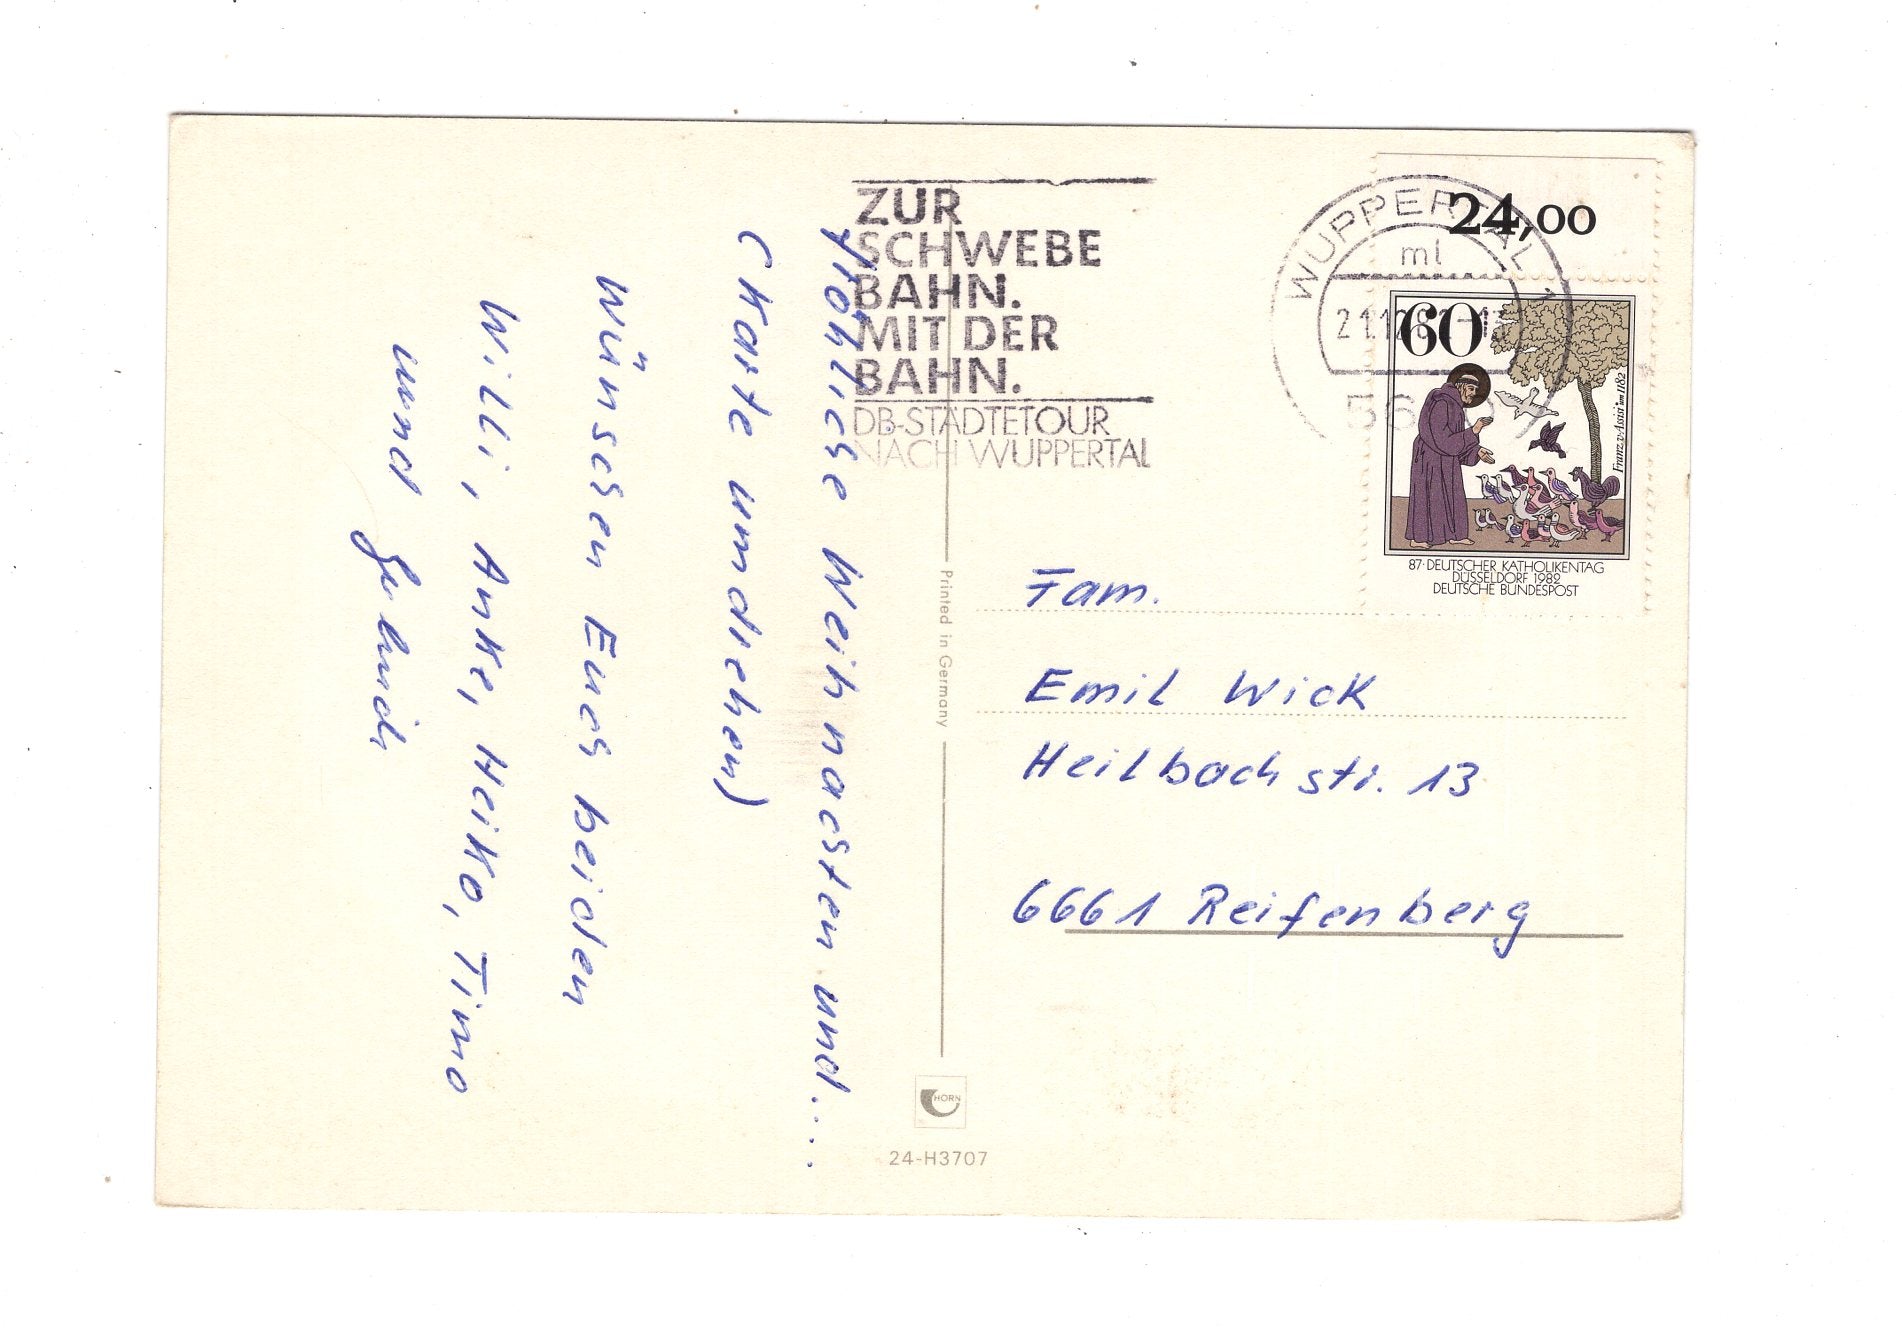 ZUR
SCHWEBE
BAHN.
MIT DER
BAHN.
DB-STÄDTETOUR
NACH WUPPERTAL
WUPPERTAL 1
ml
21.12.82-1
56
24,00
60
Franz v. Assisi um 1182
87. DEUTSCHER KATHOLIKENTAG
DÜSSELDORF 1982
DEUTSCHE BUNDESPOST
Fröhliche Weihnachten und....
(Karte umdrehen)
wünschen Euch beiden
Willi, Anke, Heiko, Timo
und
Printed in Germany
HORN
24-H3707
Fam.
Emil Wick
Heilbachstr. 13
6661 Reifenberg